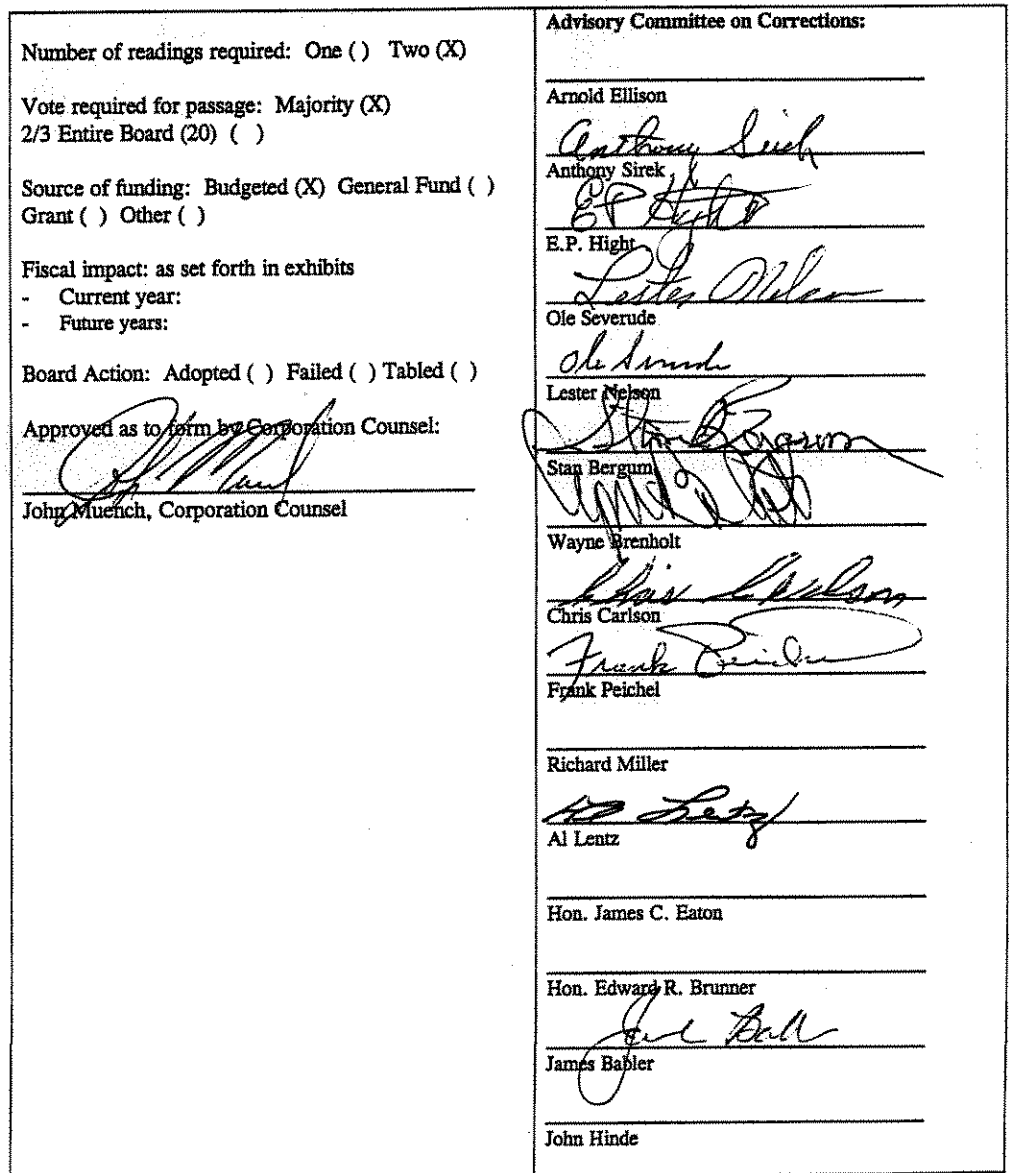 Number of readings required: One ( ) Two (X)
Vote required for passage: Majority (X)
2/3 Entire Board (20) ( )
Source of funding: Budgeted (X) General Fund ( )
Grant ( ) Other ( )
Fiscal impact: as set forth in exhibits
- Current year:
- Future years:
Board Action: Adopted ( ) Failed ( ) Tabled ( )
Approved as to form by Corporation Counsel:
John Muench, Corporation Counsel
Advisory Committee on Corrections:
Arnold Ellison
Anthony Sirek
Anthony Sirek
EP Hight
E.P. Hight
Lester Nelson
Ole Severude
Ole Severude
Lester Nelson
Stan Bergum
Stan Bergum
Wayne Brenholt
Chris Carlson
Chris Carlson
Frank Peichel
Frank Peichel
Richard Miller
Al Lentz
Al Lentz
Hon. James C. Eaton
Hon. Edward R. Brunner
James Babler
John Hinde